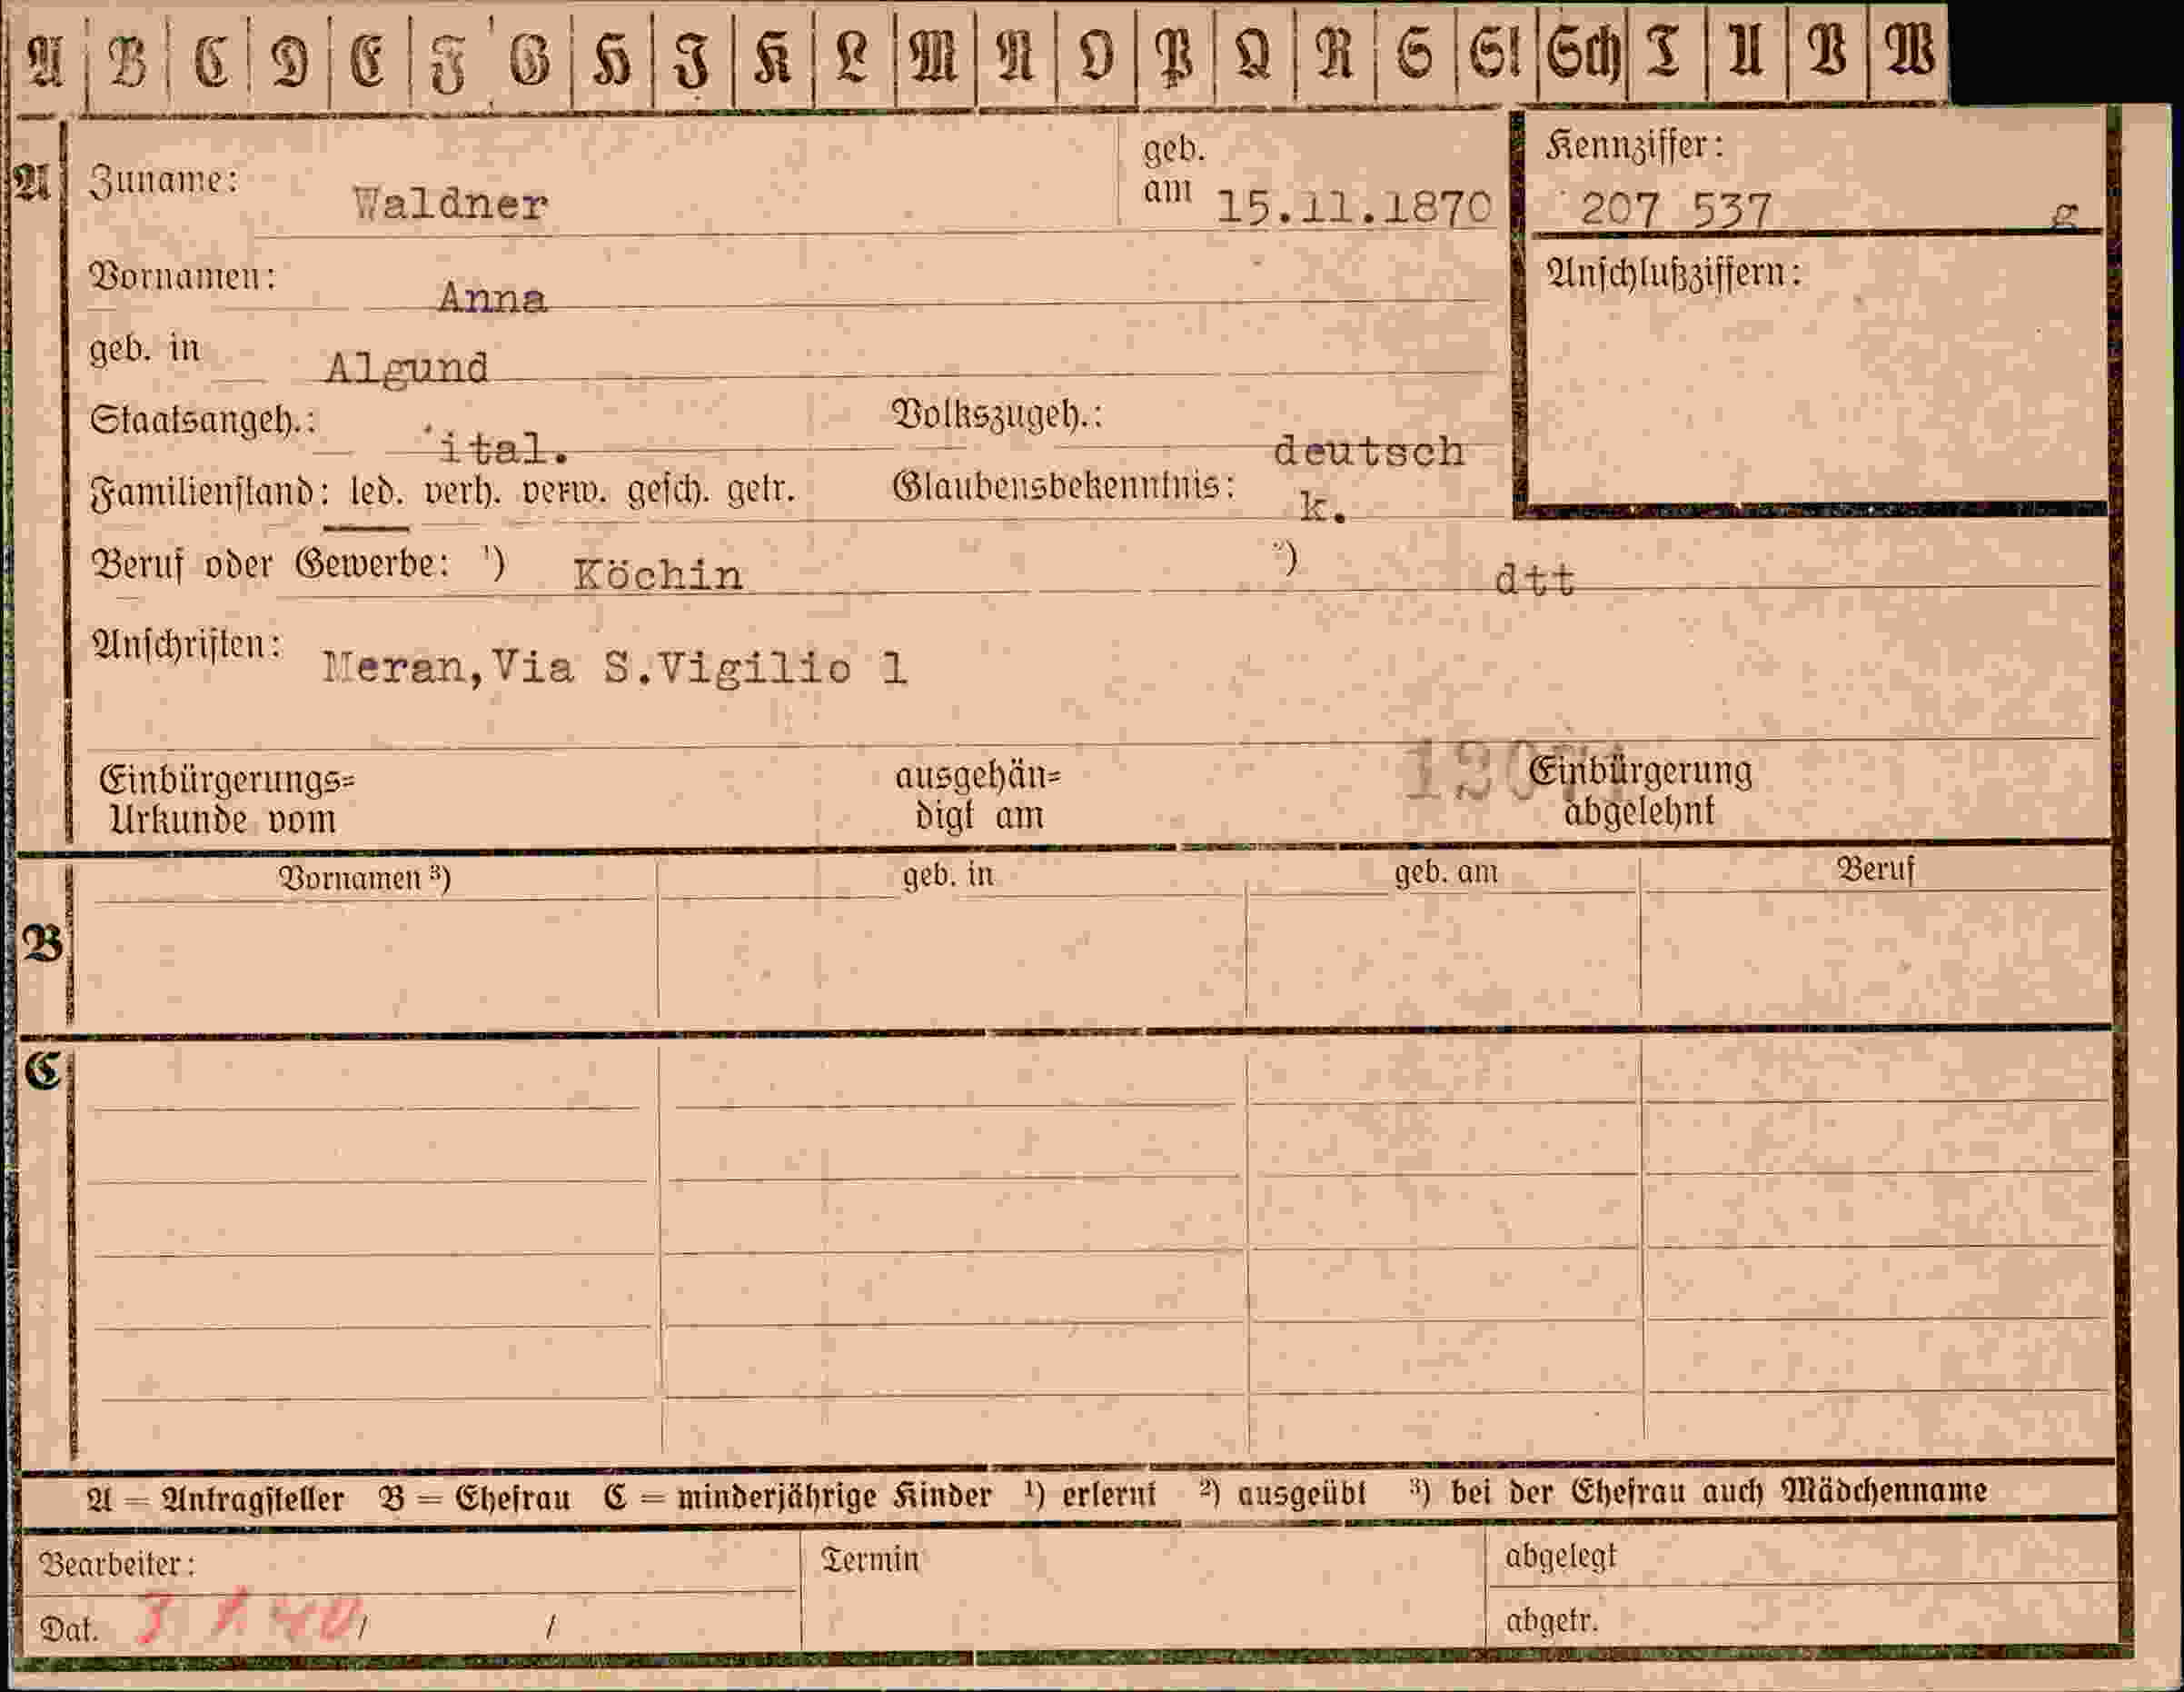 A B C D E F G H I K L M N O P Q R S St Sch T U V W
A Zuname: Waldner geb. am 15.11.1870 Kennziffer: 207 537 g
Vornamen: Anna Anschlußziffern:
geb. in Algund
Staatsangeh.: ital. Volkszugeh.: deutsch
Familienstand: led. verh. verw. gesch. getr. Glaubensbekenntnis: k.
Beruf oder Gewerbe: ¹) Köchin ²) dtt
Anschriften: Meran,Via S.Vigilio 1
Einbürgerungs= ausgehän= Einbürgerung
Urkunde vom digt am abgelehnt
Vornamen ³) geb. in geb. am Beruf
B
C
A = Antragsteller B = Ehefrau C = minderjährige Kinder ¹) erlernt ²) ausgeübt ³) bei der Ehefrau auch Mädchenname
Bearbeiter: Termin abgelegt
Dat. 3 1. 40 / / abgetr.